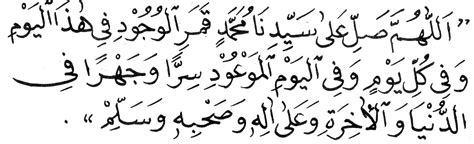 ”اَللّٰهُمَّ صَلِّ عَلَى سَيِّدِنَا مُحَمَّدٍ قَمَرِ الْوُجُودِ فِي هٰذَا الْيَوْمِ
وَفِي كُلِّ يَوْمٍ وَفِي الْيَوْمِ الْمَوْعُودِ سِرًّا وَجَهْرًا فِي
الدُّنْيَا وَالْآخِرَةِ وَعَلَى اٰلِهِ وَصَحْبِهِ وَسَلِّمْ“.